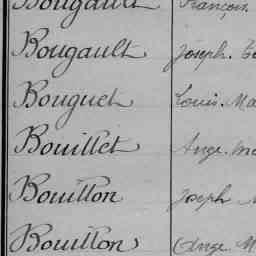 Bougault François
Bougault Joseph.
Bouguet Louis. Ma
Bouillet Ange. Ma
Bouillon Joseph
Bouillon Ange. M